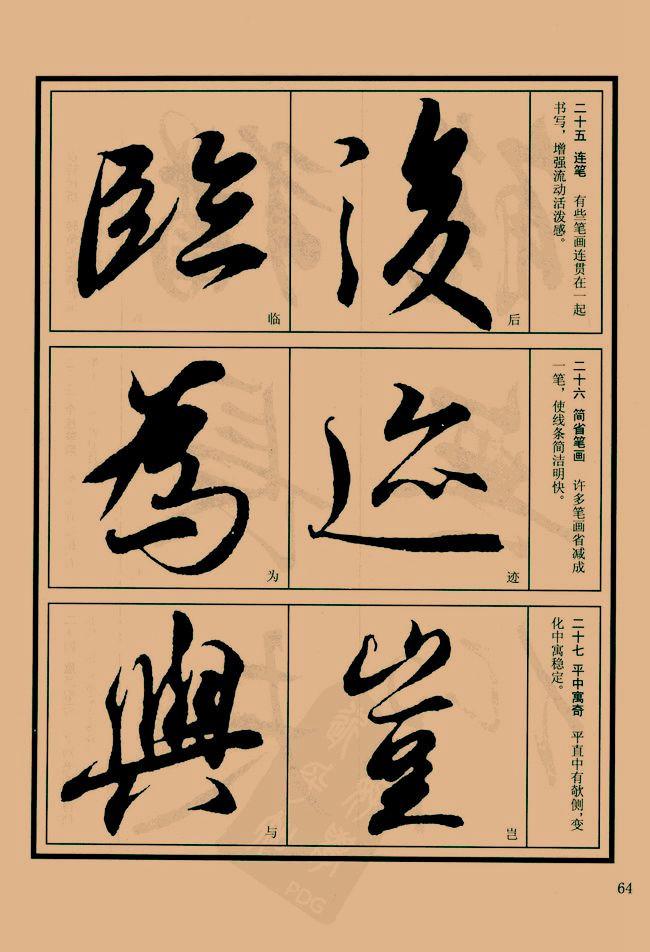 二十五 连笔 有些笔画连贯在一起
书写，增强流动活泼感。
後
后
臨
临
二十六 简省笔画 许多笔画省减成
一笔，使线条简洁明快。
迹
迹
為
为
二十七 平中寓奇 平直中有欹侧，变
化中寓稳定。
豈
岂
與
与
64
PDG